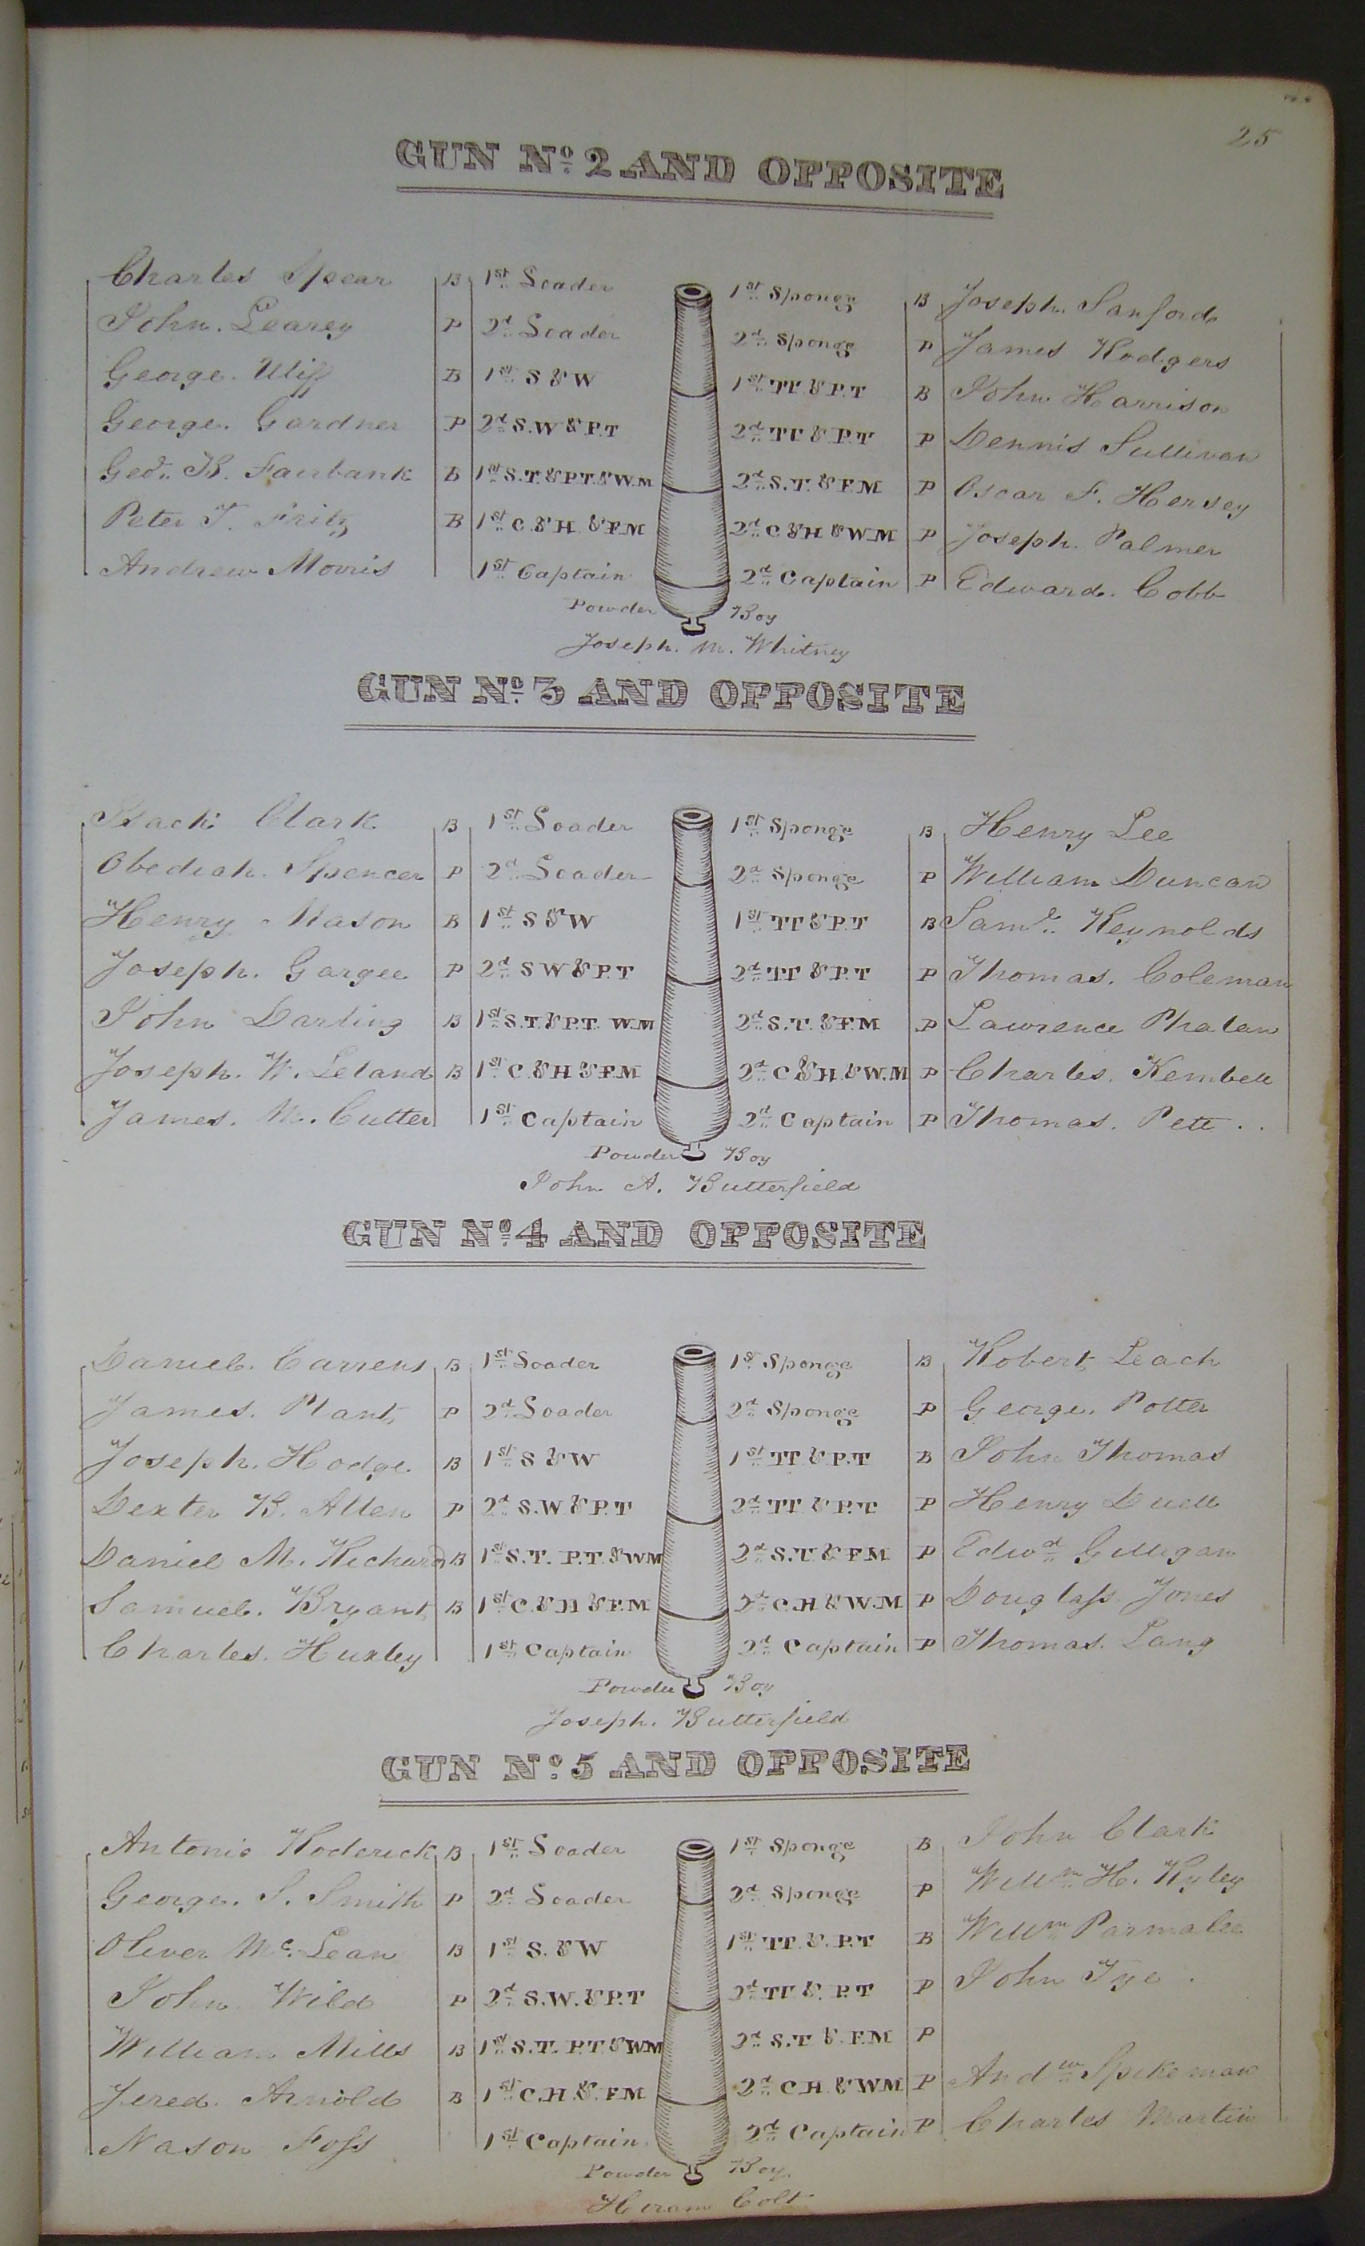 25
GUN No. 2 AND OPPOSITE
Charles Spear B 1st Loader 1st Sponge B Joseph Sanford
John Learey P 2d Loader 2d Sponge P James Rodgers
George B 1st S & W 1st TT & P.T B John Harrison
George Gardner P 2d S.W & P.T 2d TT & P.T P Dennis Sullivan
Geo. H. Fairbank B 1st S.T. & P.T. & W.M 2d S.T. & F.M P Oscar F. Hersey
Peter T. Fritz B 1st C. & H. & F.M 2d C & H & W.M P Joseph Palmer
Andrew Morris 1st Captain 2d Captain P Edward Cobb
Powder Boy
Joseph. M. Whitney
GUN No. 3 AND OPPOSITE
Clark B 1st Loader 1st Sponge B Henry Lee
Obediah Spencer P 2d Loader 2d Sponge P William Duncan
Henry Mason B 1st S & W 1st TT & P.T B Saml. Reynolds
Joseph. Gargee P 2d S W & P.T 2d TT & P.T P Thomas. Coleman
John Darling B 1st S.T & P.T. WM 2d S.T. & F.M P Lawrence Phalan
Joseph. W. Leland B 1st C. & H & F.M 2d C & H. & W.M P Charles. Kembell
James. M. Cutter 1st Captain 2d Captain P Thomas. Pett . .
Powder Boy
John A. Butterfield
GUN No. 4 AND OPPOSITE
Daniel. Carrens B 1st Loader 1st Sponge B Robert Leach
James. Plant P 2d Loader 2d Sponge P George. Potter
Joseph. Hodge B 1st S & W 1st TT & P.T B John Thomas
Dexter B. Allen P 2d S.W & P.T 2d TT & P.T. P Henry Duell
Daniel M. Richard B 1st S.T. P.T. & WM 2d S.T. & F.M P Edwd Gilligan
Samuel. Bryant B 1st C. & H & F.M 2d C.H & W.M P Douglass Jones
Charles. Huxley 1st Captain 2d Captain P Thomas. Lang
Powder Boy
Joseph. Butterfield
GUN No. 5 AND OPPOSITE
Antonio Roderick B 1st Loader 1st Sponge B John Clark
George. S. Smith P 2d Loader 2d Sponge P Willm H. Ryley
Oliver Mc. Lean B 1st S. & W 1st TT & P.T B Willm Parmalee
John Wild P 2d S.W. & P.T 2d TT & P.T P John Tye .
William Mills B 1st S.T. P.T & WM 2d S.T & F.M P
Jered. Arnold B 1st C.H & F.M 2d C.H. & WM P Andw Spikeman
Nason Foss 1st Captain. 2d Captain P Charles Martin
Powder Boy.
Hiram Colt